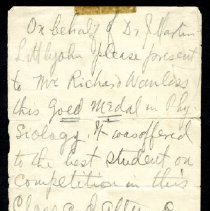 On behalf of Dr J Martin
Littlejohn please present
to Mr Richard Wanless
this Goed Medal in Phy
siology. It was offered
to the best student on
competition in this
Class